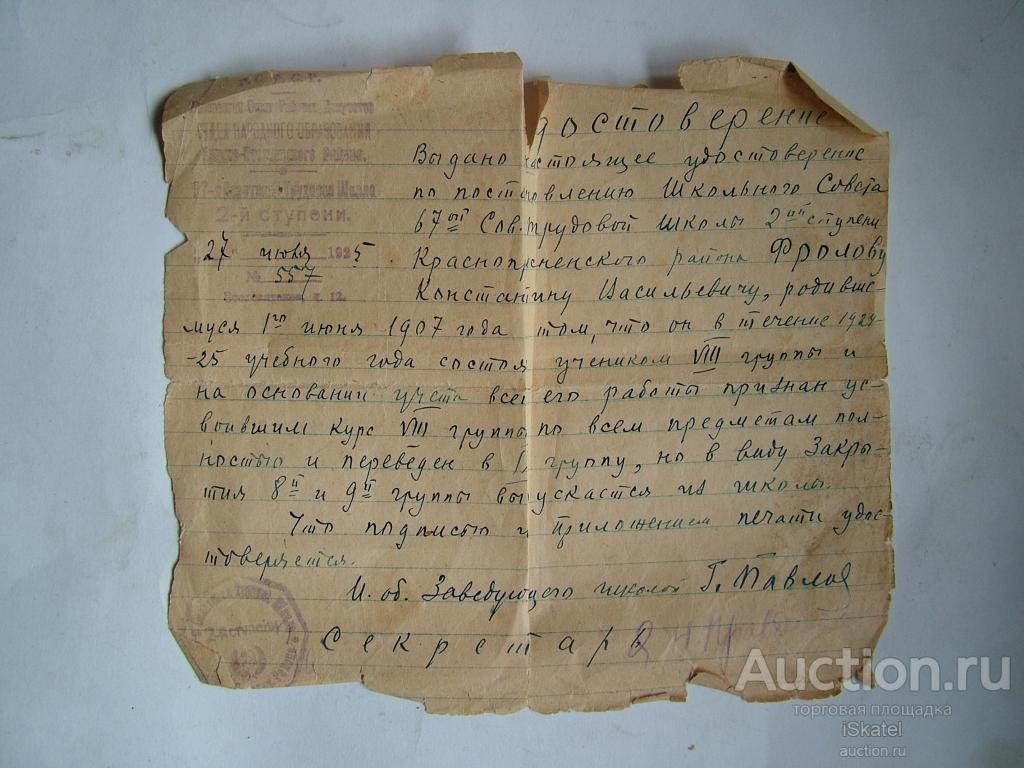 Р.С.Ф.С.Р.
ОТДЕЛ НАРОДНОГО ОБРАЗОВАНИЯ
Трудовая Школа
2-й ступени.
27 июня 1925
№ 557
достоверение
Выдано настоящее удостоверение
по постановлению Школьного Совета
67ой Сов. трудовой школы 2ой ступени
Краснопресненского района Фролову
Константину Васильевичу, родивше-
муся 1го июня 1907 года в том, что он в течение 1924
-25 учебного года состоял учеником VIII группы и
на основании учета всей его работы признан ус-
воившим курс VIII группы по всем предметам пол-
ностью и переведен в группу, но в виду закры-
тия 8й и 9й группы выпускается из школы.
Что подписью и приложением печати удос-
товеряется.
И. об. Заведующего школой Г. Павлов
Секретарь
Auction.ru
торговая площадка
iSkatel
auction.ru